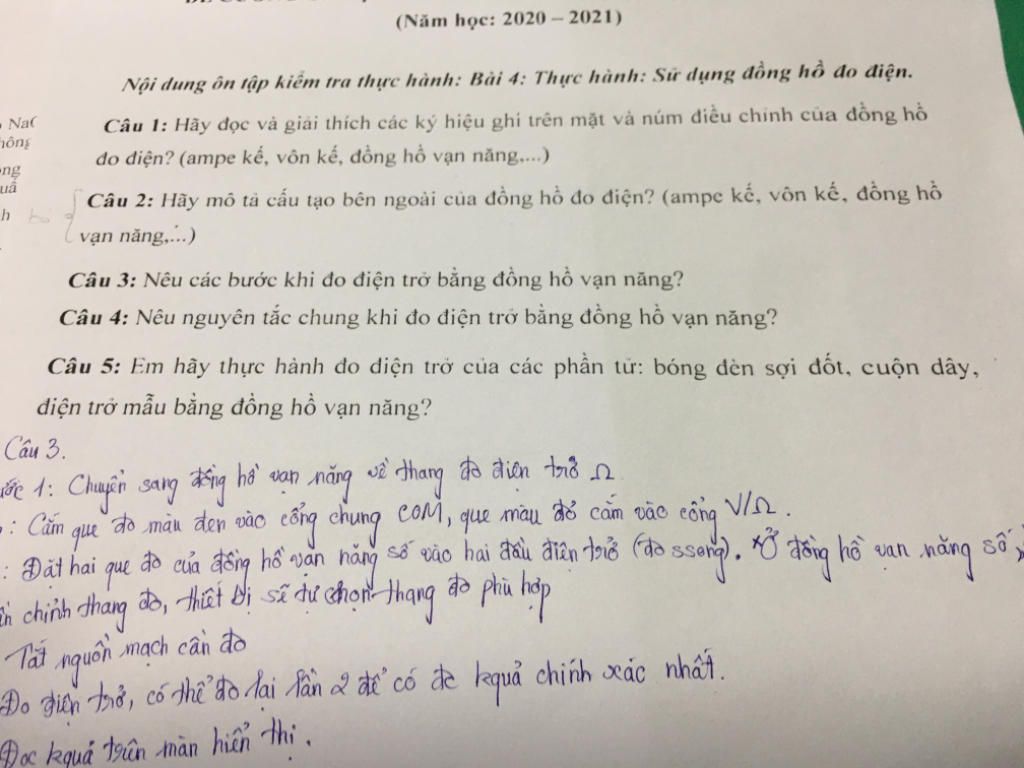 (Năm học: 2020 – 2021)
Nội dung ôn tập kiểm tra thực hành: Bài 4: Thực hành: Sử dụng đồng hồ đo điện.
Câu 1: Hãy đọc và giải thích các ký hiệu ghi trên mặt và núm điều chỉnh của đồng hồ
đo điện? (ampe kế, vôn kế, đồng hồ vạn năng,...)
Câu 2: Hãy mô tả cấu tạo bên ngoài của đồng hồ đo điện? (ampe kế, vôn kế, đồng hồ
vạn năng,...)
Câu 3: Nêu các bước khi đo điện trở bằng đồng hồ vạn năng?
Câu 4: Nêu nguyên tắc chung khi đo điện trở bằng đồng hồ vạn năng?
Câu 5: Em hãy thực hành đo điện trở của các phần tử: bóng đèn sợi đốt, cuộn dây,
điện trở mẫu bằng đồng hồ vạn năng?
Câu 3.
1: Chuyển sang đồng hồ vạn năng về thang đo điện trở Ω
: Cắm que đo màu đen vào cổng chung COM, que màu đỏ cắm vào cổng V/Ω.
: Đặt hai que đo của đồng hồ vạn năng số vào hai đầu điện trở (đo ssong). * Ở đồng hồ vạn năng số
chỉnh thang đo, thiết bị sẽ tự chọn thang đo phù hợp
Tắt nguồn mạch cần đo
Đo điện trở, có thể đo lại lần 2 để có đc kquả chính xác nhất.
Đọc kquả trên màn hiển thị.